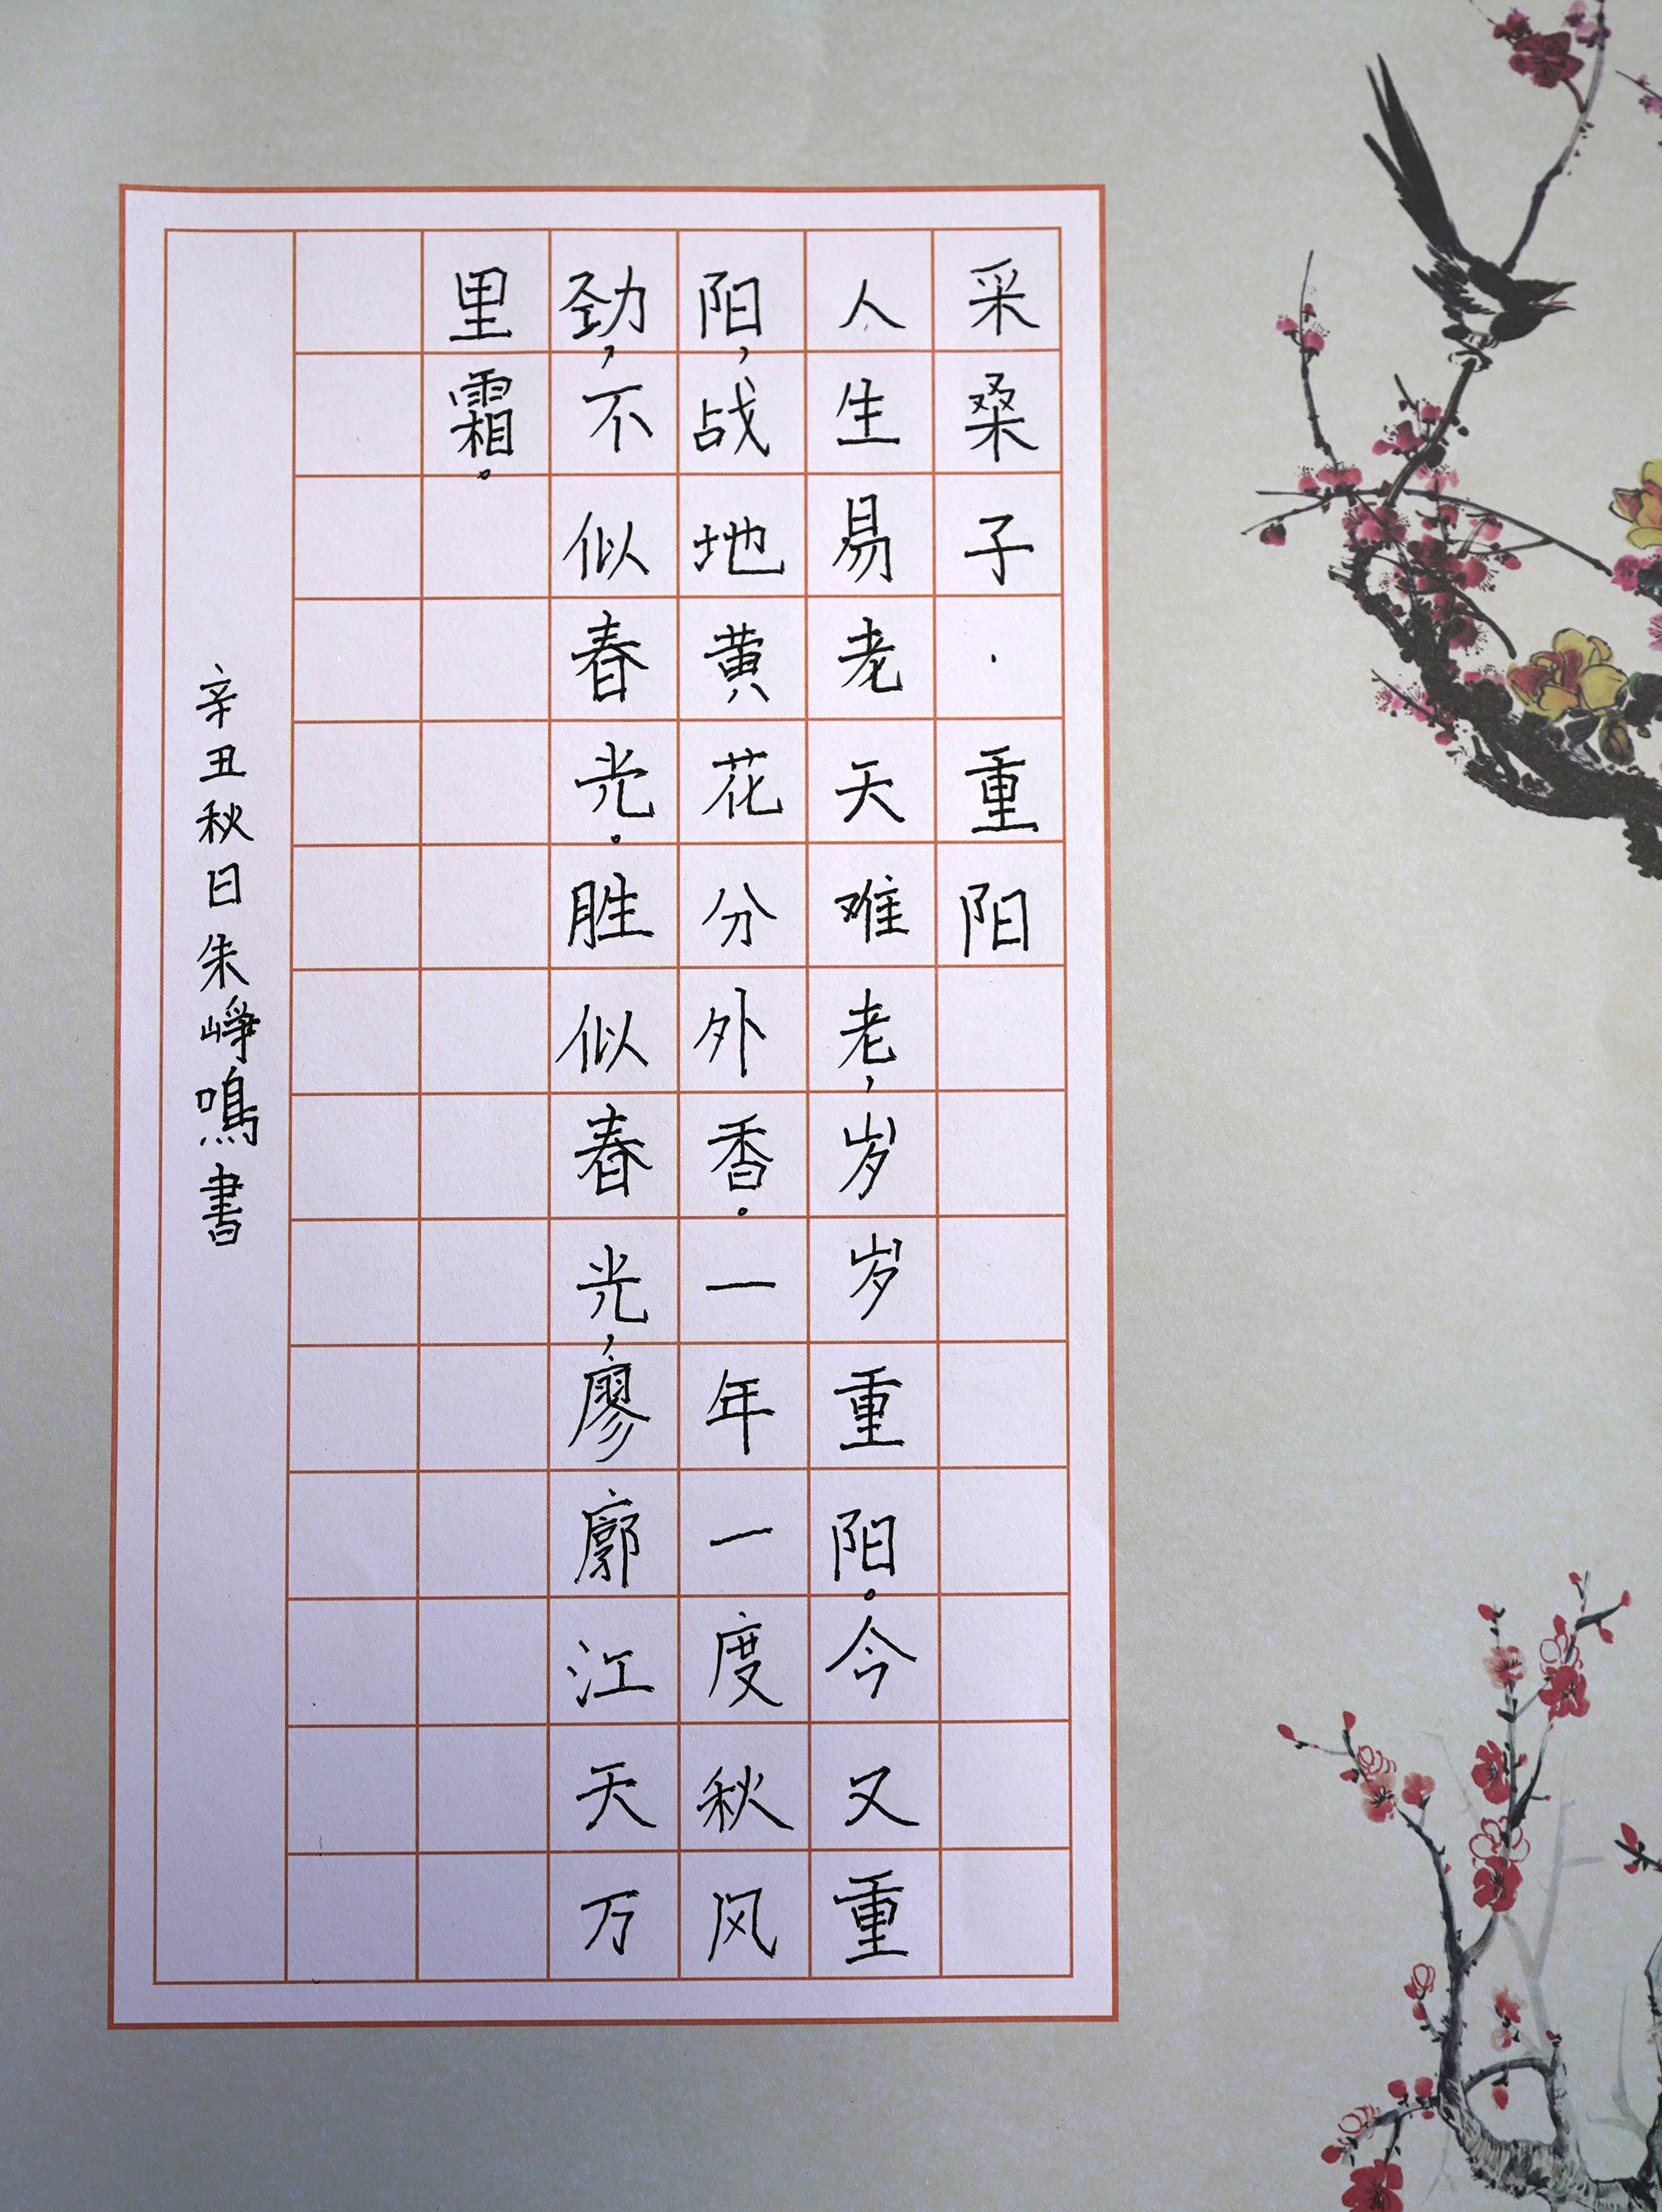 采桑子·重阳
人生易老天难老，岁岁重阳。今又重
阳，战地黄花分外香。一年一度秋风
劲，不似春光。胜似春光，廖廓江天万
里霜。
辛丑秋日朱峥鳴書